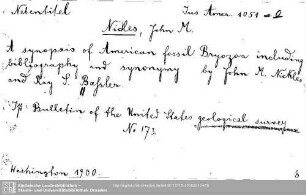 Nebentitel
Jus Amer. 1051 - l
Nickles, John M.
A synopsis of American fossil Bryozoa including
bibliography and synonymy by John M. Nickles
and Ray S. Baßler
Bulletin of the United States geological survey
No 173
Washington 1900.
8
Sächsische Landesbibliothek -
Staats- und Universitätsbibliothek Dresden